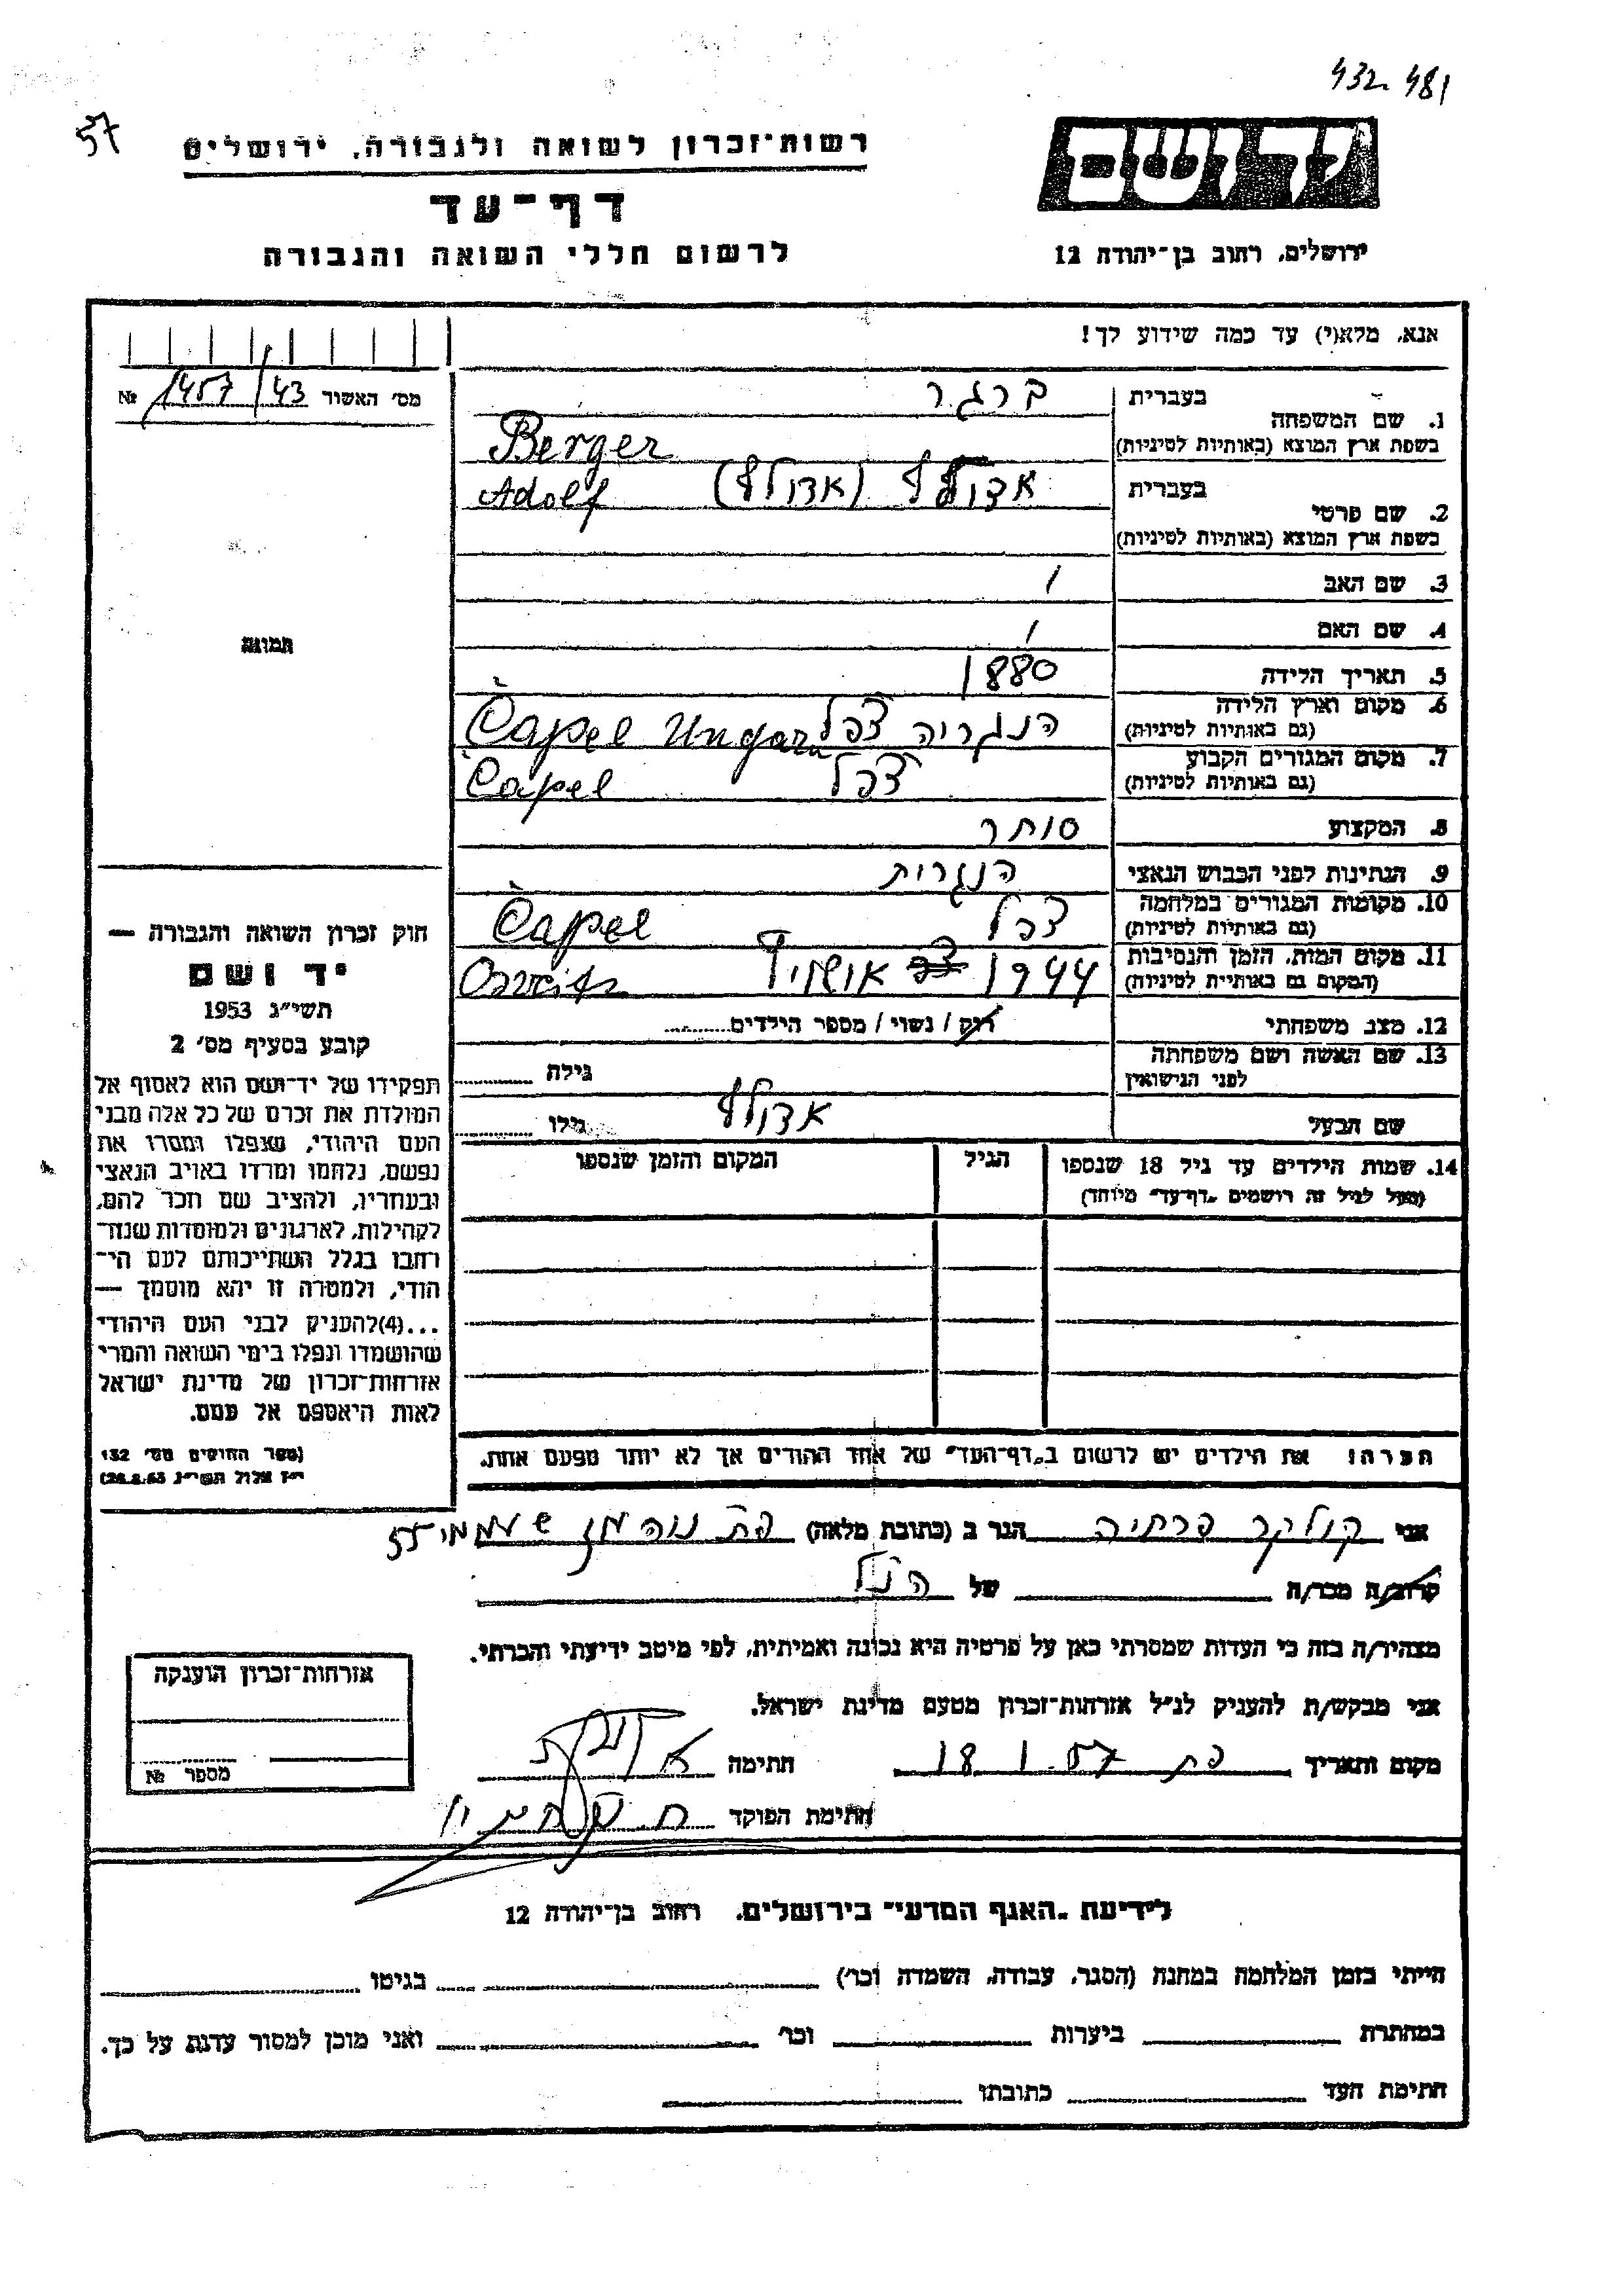 432. 481
57
רשות־זכרון לשואה ולגבורה, ירושלים
ידושם
דף־עד
לרשום חללי השואה והגבורה
ירושלים, רחוב בן־יהודה 12
אנא, מלא(י) עד כמה שידוע לך!
מס׳ האשור 1457/43 №
בעברית ברגר
1. שם המשפחה
בשפת ארץ המוצא (באותיות לטיניות) Berger
בעברית אדולף (אדולף) Adolf
2. שם פרטי
בשפת ארץ המוצא (באותיות לטיניות)
3. שם האב /
4. שם האם /
תמונה
5. תאריך הלידה 1880
6. מקום וארץ הלידה
(גם באותיות לטיניות) הנגריה צפל Čapel Ungarn
7. מקום המגורים הקבוע
(גם באותיות לטיניות) צפל Čapel
8. המקצוע סוחר
9. הנתינות לפני הכבוש הנאצי הנגרית
10. מקומות המגורים במלחמה
(גם באותיות לטיניות) צפל Čappel
11. מקום המות, הזמן והנסיבות
(המקום גם באותיית לטיניות) 1944 אושויץ
12. מצב משפחתי רוק / נשוי / מספר הילדים
13. שם האשה ושם משפחתה
לפני הנישואין גילה
שם הבעל אדולף גילו
14. שמות הילדים עד גיל 18 שנספו הגיל המקום והזמן שנספו
(מעל לגיל זה רושמים „דף־עד״ מיוחד)
חוק זכרון השואה והגבורה —
יד ושם
תשי״ג 1953
קובע בסעיף מס׳ 2
תפקידו של יד־ושם הוא לאסוף אל
המולדת את זכרם של כל אלה מבני
העם היהודי, שנפלו ומסרו את
נפשם, נלחמו ומרדו באויב הנאצי
ובעוזריו, ולהציב שם וזכר להם,
לקהילות, לארגונים ולמוסדות שנח־
רחבו בגלל השתייכותם לעם הי־
הודי, ולמטרה זו יהא מוסמך —
...(4)להעניק לבני העם היהודי
שהושמדו ונפלו בימי השואה והמרי
אזרחות־זכרון של מדינת ישראל
לאות היאספם אל עמם.
(ספר החוקים מס׳ 132
י״ז אלול תשי״ג 28.8.53)
הערה: את הילדים יש לרשום ב„דף־העד״ של אחד ההורים אך לא יותר מפעם אחת.
אני פרחיה הגר ב (כתובת מלאה) 55
קרוב/ה מכר/ה של הנ״ל
מצהיר/ה בזה כי העדות שמסרתי כאן על פרטיה היא נכונה ואמיתית, לפי מיטב ידיעתי והכרתי.
אני מבקש/ת להעניק לנ״ל אזרחות־זכרון מטעם מדינת ישראל.
מקום ותאריך פת 18.1.57 חתימה
חתימת הפוקד
אזרחות־זכרון הוענקה
מספר №
לידיעת „האגף המדעי״ בירושלים, רחוב בן־יהודה 12
הייתי בזמן המלחמה במחנה (הסגר, עבודה, השמדה וכר׳) בגיטו
במחתרת ביערות וכר׳ ואני מוכן למסור עדות על כך.
חתימת העד כתובתו